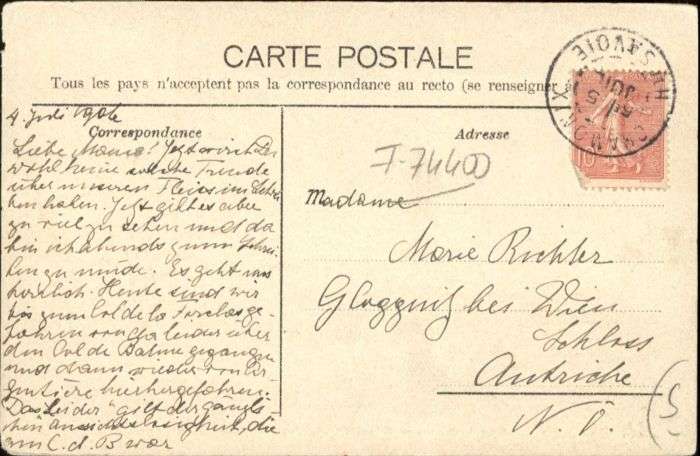 CARTE POSTALE
Tous les pays n'acceptent pas la correspondance au recto (se renseigner
4. Juli 1906
Correspondance
Adresse
CHAMONIX
Hte SAVOIE
5
JUIL
10
F-74400
Liebe Mama! Jetzt wirst Du
wohl keine solche Freude
über unseren Fleiss im Schrei-
ben haben. Jetzt gilt es aber
zu viel zu sehen und da
bin ich abends zum Schrei-
ben zu müde. Es geht uns
herrlich. Heute sind wir
bis zum Col de la Forclaz ge-
fahren von da leider über
den Col de Balme gegangen
und dann wieder von
hierhergefahren.
Das leider gilt der gänzli-
chen Aussichtslosigkeit, die
am C. d. B. war
Madame
Marie Richter
Gloggnitz bei Wien
Schloss
Autriche
N. Ö.